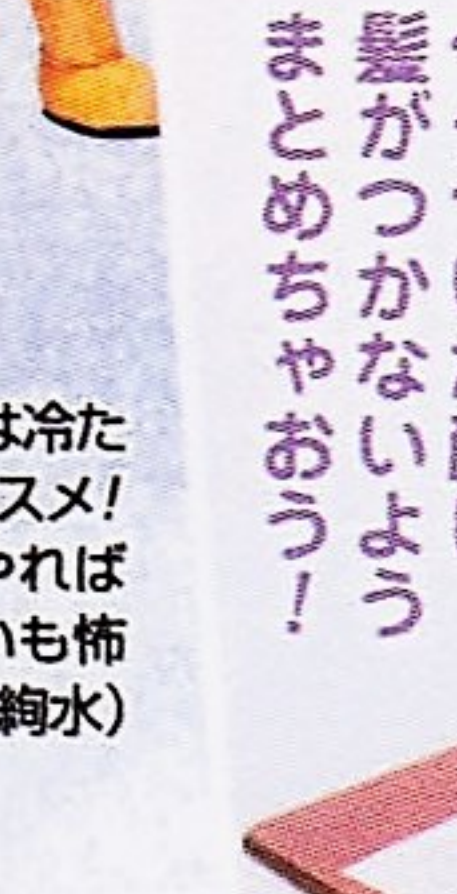 髪がつかないよう
まとめちゃおう！
は冷た
スメ！
やれば
いも怖
絢水）